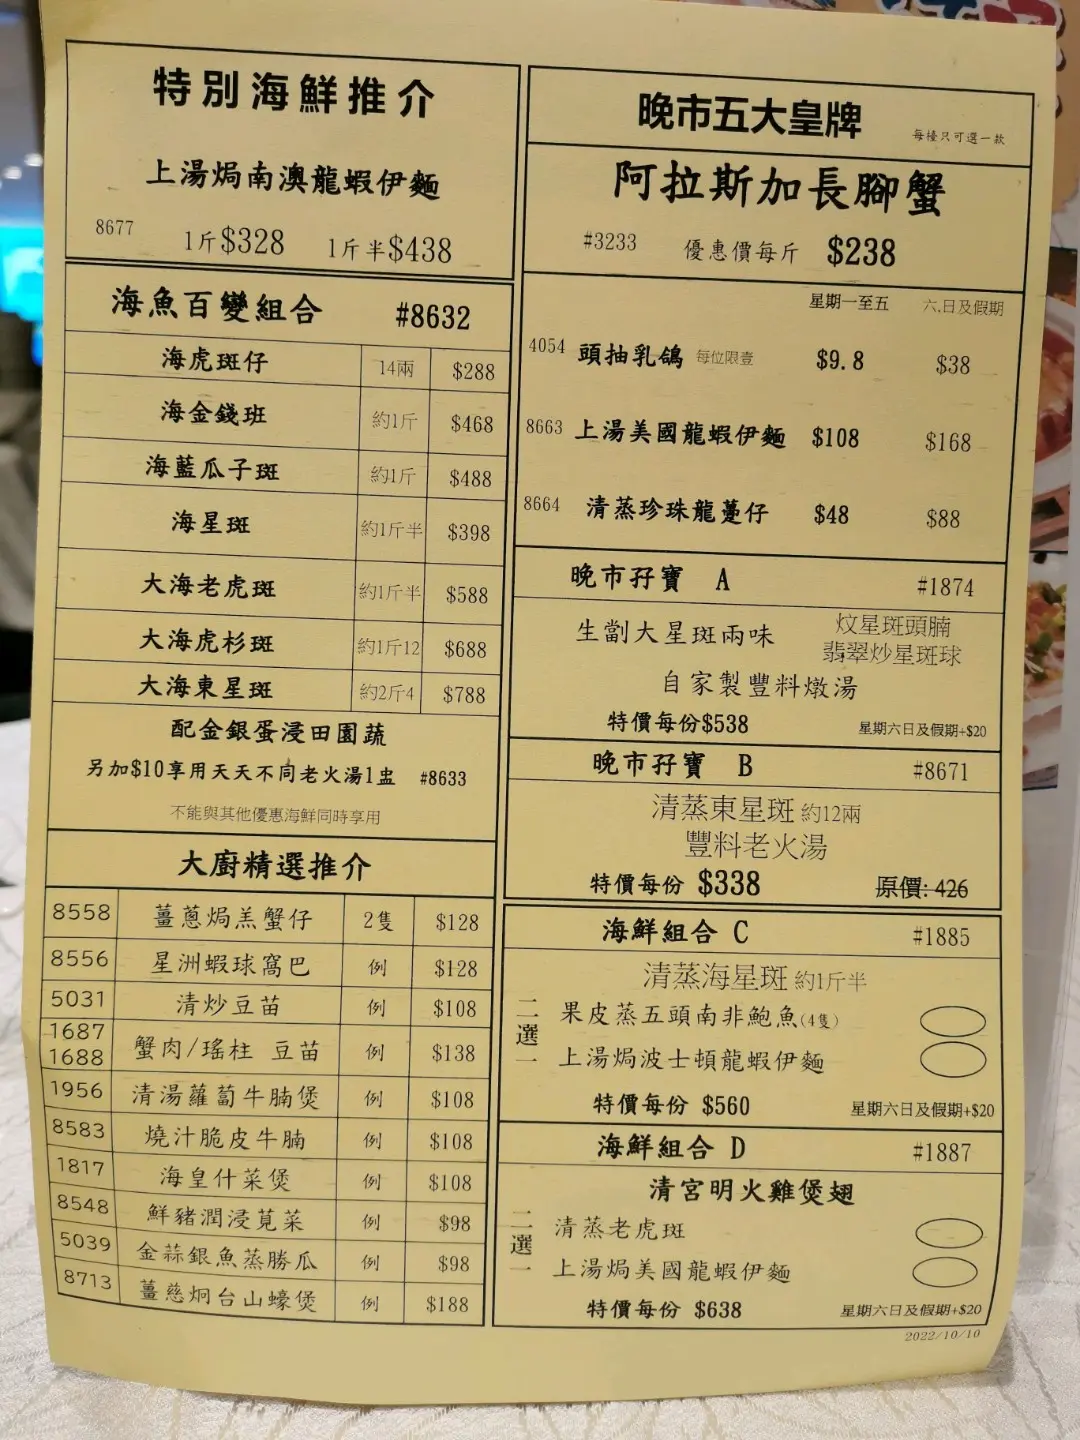 特別海鮮推介
上湯焗南澳龍蝦伊麵
8677 1斤$328 1斤半$438
海魚百變組合 #8632
海虎斑仔 14兩 $288
海金錢班 約1斤 $468
海藍瓜子斑 約1斤 $488
海星斑 約1斤半 $398
大海老虎斑 約1斤半 $588
大海虎杉斑 約1斤12 $688
大海東星斑 約2斤4 $788
配金銀蛋浸田園蔬
另加$10享用天天不同老火湯1盅 #8633
不能與其他優惠海鮮同時享用
大廚精選推介
8558 薑蔥焗羔蟹仔 2隻 $128
8556 星洲蝦球窩巴 例 $128
5031 清炒豆苗 例 $108
1687
1688 蟹肉/瑤柱 豆苗 例 $138
1956 清湯蘿蔔牛腩煲 例 $108
8583 燒汁脆皮牛腩 例 $108
1817 海皇什菜煲 例 $108
8548 鮮豬潤浸莧菜 例 $98
5039 金蒜銀魚蒸勝瓜 例 $98
8713 薑慈炯台山蠔煲 例 $188
晚市五大皇牌 每檯只可選一款
阿拉斯加長腳蟹
#3233 優惠價每斤 $238
星期一至五 六,日及假期
4054 頭抽乳鴿 每位限壹 $9.8 $38
8663 上湯美國龍蝦伊麵 $108 $168
8664 清蒸珍珠龍躉仔 $48 $88
晚市孖寶 A #1874
生劏大星斑兩味 炆星斑頭腩
翡翠炒星斑球
自家製豐料燉湯
特價每份$538 星期六日及假期+$20
晚市孖寶 B #8671
清蒸東星斑 約12兩
豐料老火湯
特價每份 $338 原價: 426
海鮮組合 C #1885
清蒸海星斑 約1斤半
二選一
果皮蒸五頭南非鮑魚(4隻)
上湯焗波士頓龍蝦伊麵
特價每份 $560 星期六日及假期+$20
海鮮組合 D #1887
清宮明火雞煲翅
二選一
清蒸老虎斑
上湯焗美國龍蝦伊麵
特價每份 $638 星期六日及假期+$20
2022/10/10